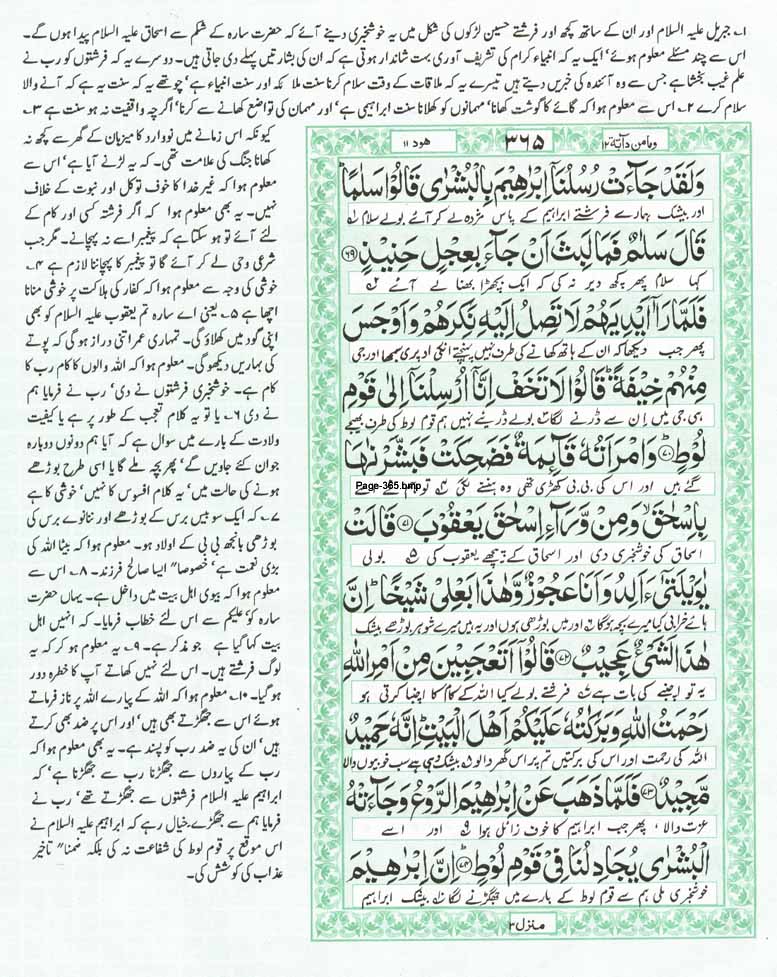 ۱۔ جبریل علیہ السلام اور ان کے ساتھ کچھ اور فرشتے حسین لڑکوں کی شکل میں یہ خوشخبری دینے آئے کہ حضرت سارہ کے شکم سے اسحاق علیہ السلام پیدا ہوں گے۔
اس سے چند مسئلے معلوم ہوئے' ایک یہ کہ انبیاء کرام کی تشریف آوری بہت شاندار ہوتی ہے کہ ان کی بشارتیں پہلے دی جاتی ہیں۔ دوسرے یہ کہ فرشتوں کو رب نے
علم غیب بخشا ہے جس سے وہ آئندہ کی خبریں دیتے ہیں تیسرے یہ کہ ملاقات کے وقت سلام کرنا سنت ملائکہ اور سنت انبیاء ہے' چوتھے یہ کہ سنت یہ ہے کہ آنے والا
سلام کرے ۲۔ اس سے معلوم ہوا کہ گائے کا گوشت کھانا' مہمانوں کو کھلانا سنت ابراہیمی ہے' اور مہمان کی تواضع کھانے سے کرنا' اگرچہ واقفیت نہ ہو سنت ہے ۳۔
کیونکہ اس زمانے میں نووارد کا میزبان کے گھر سے کچھ نہ
کھانا جنگ کی علامت تھی۔ کہ یہ لڑنے آیا ہے' اس سے
معلوم ہوا کہ غیر خدا کا خوف توکل اور نبوت کے خلاف
نہیں۔ یہ بھی معلوم ہوا کہ اگر فرشتہ کسی اور کام کے
لئے آئے تو ہو سکتا ہے کہ پیغمبر اسے نہ پہچانے۔ مگر جب
شرعی وحی لے کر آئے گا تو پیغمبر کا پہچاننا لازم ہے ۴۔
خوشی کی وجہ سے معلوم ہوا کہ کفار کی ہلاکت پر خوشی منانا
اچھا ہے ۵۔ یعنی اے سارہ تم یعقوب علیہ السلام کو بھی
اپنی گود میں کھلاؤ گی۔ تمہاری عمر اتنی دراز ہو گی کہ پوتے
کی بہاریں دیکھو گی۔ معلوم ہوا کہ اللہ والوں کا کام رب کا
کام ہے۔ خوشخبری فرشتوں نے دی' رب نے فرمایا ہم
نے دی ۶۔ یا تو یہ کلام تعجب کے طور پر ہے یا کیفیت
ولادت کے بارے میں سوال ہے کہ آیا ہم دونوں دوبارہ
جوان کئے جاویں گے' پھر بچہ ملے گا یا اسی طرح بوڑھے
ہونے کی حالت میں' یہ کلام افسوس کا نہیں' خوشی کا ہے
۷۔ کہ ایک سو بیس برس کے بوڑھے اور ننانوے برس کی
بوڑھی بانجھ بی بی کے اولاد ہو۔ معلوم ہوا کہ بیٹا اللہ کی
بڑی نعمت ہے' خصوصاً" ایسا صالح فرزند۔ ۸۔ اس سے
معلوم ہوا کہ بیوی اہل بیت میں داخل ہے۔ یہاں حضرت
سارہ کو علیکم سے اس لئے خطاب فرمایا۔ کہ انہیں اہل
بیت کہا گیا ہے جو مذکر ہے۔ ۹۔ یہ معلوم ہو کر کہ یہ
لوگ فرشتے ہیں۔ اس لئے نہیں کھاتے آپ کا خطرہ دور
ہو گیا۔ ۱۰۔ معلوم ہوا کہ اللہ کے پیارے اللہ پر ناز فرماتے
ہوئے اس سے جھگڑتے بھی ہیں' اور اس پر ضد بھی کرتے
ہیں' ان کی یہ ضد رب کو پسند ہے۔ یہ بھی معلوم ہوا کہ
رب کے پیاروں سے جھگڑنا رب سے جھگڑنا ہے' کہ
ابراہیم علیہ السلام فرشتوں سے جھگڑتے تھے' رب نے
فرمایا ہم سے جھگڑے خیال رہے کہ ابراہیم علیہ السلام نے
اس موقع پر قوم لوط کی شفاعت نہ کی بلکہ ضمناً" تاخیر
عذاب کی کوشش کی۔
ومامن دآبة ۱۲ ۳۶۵ هود ۱۱
وَلَقَدْ جَآءَتْ رُسُلُنَآ اِبْرٰهِيْمَ بِالْبُشْرٰى قَالُوْا سَلٰمًا
اور بیشک ہمارے فرشتے ابراہیم کے پاس مژدہ لے کر آئے بولے سلام ۱
قَالَ سَلٰمٌ فَمَا لَبِثَ اَنْ جَآءَ بِعِجْلٍ حَنِيْذٍ ۶۹
کہا سلام پھر کچھ دیر نہ کی کہ ایک بچھڑا بھنا لے آئے ۲
فَلَمَّا رَآ اَيْدِيَهُمْ لَا تَصِلُ اِلَيْهِ نَكِرَهُمْ وَاَوْجَسَ
پھر جب دیکھا کہ ان کے ہاتھ کھانے کی طرف نہیں پہنچتے انکو اوپری سمجھا اور جی
مِنْهُمْ خِيْفَةً ؕ قَالُوْا لَا تَخَفْ اِنَّآ اُرْسِلْنَآ اِلٰى قَوْمِ
ہی جی میں ان سے ڈرنے لگا ۳ بولے ڈریئے نہیں ہم قوم لوط کی طرف بھیجے
لُوْطٍ ؕ ۷۰ وَامْرَاَتُهٗ قَآئِمَةٌ فَضَحِكَتْ فَبَشَّرْنٰهَا
گئے ہیں اور اس کی بی بی کھڑی تھی وہ ہنسنے لگی ۴ تو ہم نے اسے
Page-365.bmp
بِاِسْحٰقَ ۙ وَمِنْ وَّرَآءِ اِسْحٰقَ يَعْقُوْبَ ۷۱ قَالَتْ
اسحاق کی خوشخبری دی اور اسحاق کے پیچھے یعقوب کی ۵ بولی
يٰوَيْلَتٰٓى ءَاَلِدُ وَاَنَا عَجُوْزٌ وَّهٰذَا بَعْلِيْ شَيْخًا ؕ اِنَّ
ہائے خرابی کیا میرے بچہ ہوگا ۶ اور میں بوڑھی ہوں اور یہ ہیں میرے شوہر بوڑھے بیشک
هٰذَا لَشَيْءٌ عَجِيْبٌ ۷۲ قَالُوْٓا اَتَعْجَبِيْنَ مِنْ اَمْرِ اللّٰهِ
یہ تو اچنبھے کی بات ہے ۷ فرشتے بولے کیا اللہ کے کام کا اچنبا کرتی ہو
رَحْمَتُ اللّٰهِ وَبَرَكٰتُهٗ عَلَيْكُمْ اَهْلَ الْبَيْتِ ؕ اِنَّهٗ حَمِيْدٌ
اللہ کی رحمت اور اس کی برکتیں تم پر اس گھر والو ۸ بیشک وہی ہے سب خوبیوں والا
مَّجِيْدٌ ۷۳ فَلَمَّا ذَهَبَ عَنْ اِبْرٰهِيْمَ الرَّوْعُ وَجَآءَتْهُ
عزت والا، پھر جب ابراہیم کا خوف زائل ہوا ۹ اور اسے
الْبُشْرٰى يُجَادِلُنَا فِيْ قَوْمِ لُوْطٍ ؕ ۷۴ اِنَّ اِبْرٰهِيْمَ
خوشخبری ملی ہم سے قوم لوط کے بارے میں جھگڑنے لگا ۱۰ بیشک ابراہیم
منزل ۳